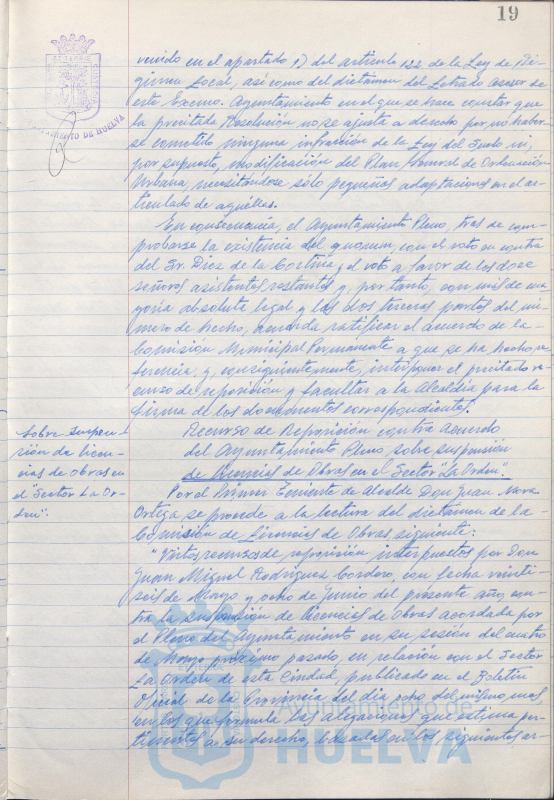 19
AYUNTAMIENTO DE HUELVA
venido en el apartado 1) del artículo 122 de la Ley de Ré-
gimen Local, así como del dictamen del Letrado Asesor de
este Excmo. Ayuntamiento en el que se hace constar que
la precitada Resolución no se ajusta a derecho por no haber-
se cometido ninguna infracción de la Ley del Suelo ni,
por supuesto, modificación del Plan General de Ordenación
Urbana, necesitándose sólo pequeñas adaptaciones en el ar-
ticulado de aquélles.
En consecuencia, el Ayuntamiento Pleno, tras de com-
probarse la existencia del quorum, con el voto en contra
del Sr. Díez de la Cortina y el voto a favor de los doce
señores asistentes restantes y, por tanto, con más de ma-
yoría absoluta legal y las dos terceras partes del nú-
mero de hecho, acuerda ratificar el acuerdo de la
Comisión Municipal Permanente a que se ha hecho re-
ferencia, y, consiguientemente, interponer el precitado re-
curso de reposición y facultar a la Alcaldía para la
firma de los documentos correspondientes.
Sobre suspen-
sión de licen-
cias de obras en
el "Sector La Or-
den".
Recurso de Reposición contra acuerdo
del Ayuntamiento Pleno sobre suspensión
de Licencias de Obras en el Sector "La Orden".
Por el Primer Teniente de Alcalde Don Juan Nava
Ortega se procede a la lectura del dictamen de la
Comisión de Licencias de Obras, siguiente:
"Vistos recursos de reposición interpuestos por Don
Juan Miguel Rodríguez Cordero, con fecha veinti-
seis de Marzo y ocho de Junio del presente año, con-
tra la suspensión de licencias de obras acordada por
el Pleno del Ayuntamiento en su sesión del cuatro
de Marzo próximo pasado, en relación con el Sector
La Orden de esta Ciudad, publicado en el Boletín
Oficial de la Provincia del día ocho del mismo mes,
en los que formula las alegaciones que estima per-
tinentes a su derecho, basadas en los siguientes ar-
Ayuntamiento de
HUELVA